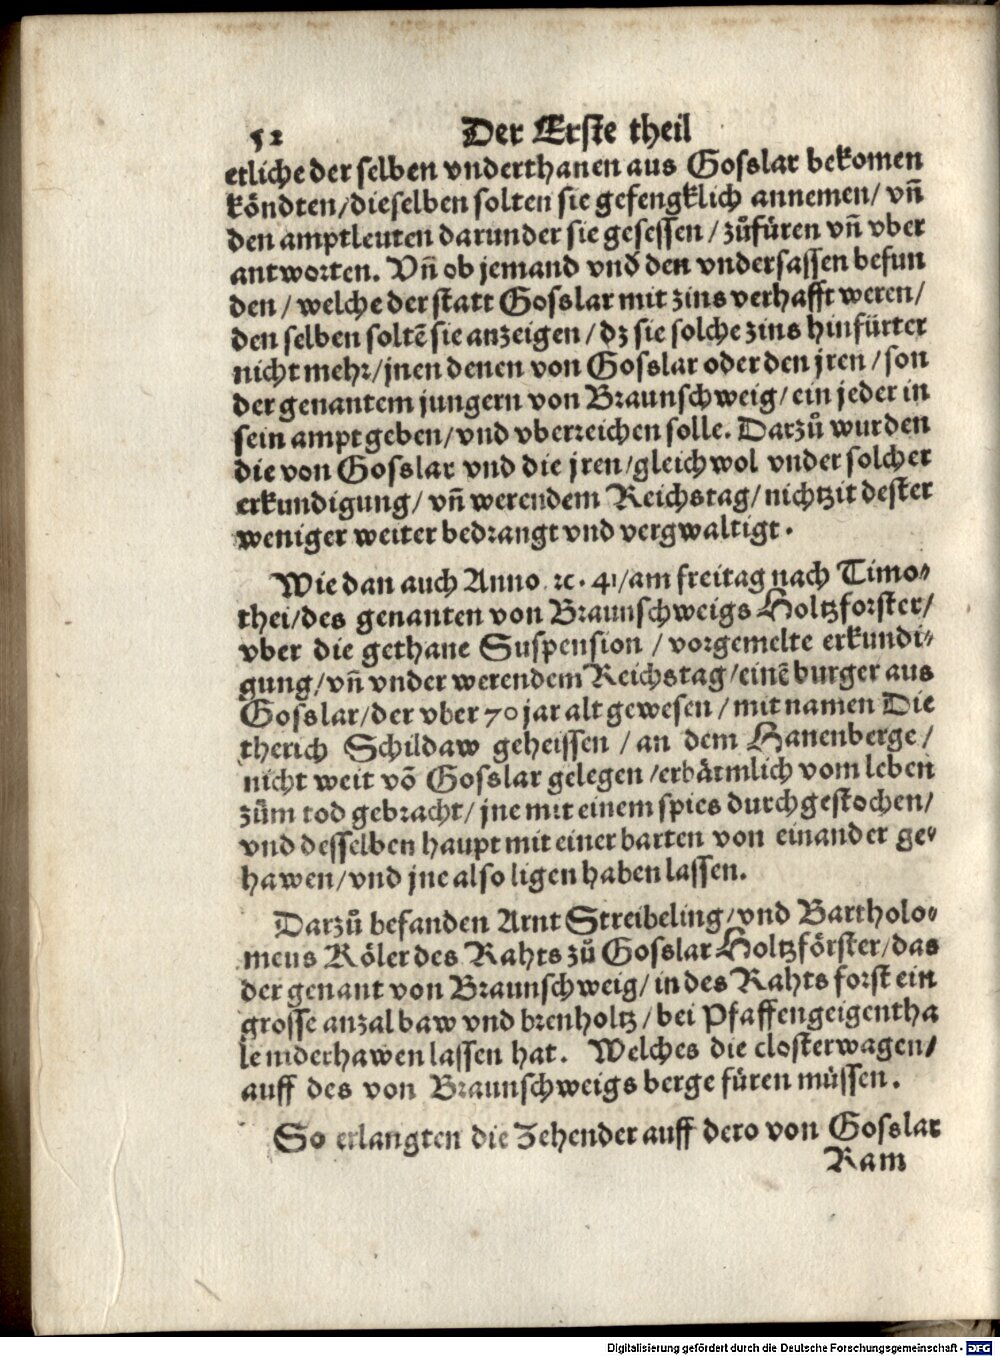 52 Der Erste theil
etliche der selben vnderthanen aus Gosslar bekomen
köndten/dieselben solten sie gefengklich annemen/ vñ
den amptleuten darunder sie gesessen / zůfüren vñ vber
antworten. Vñ ob jemand vnd den vndersassen befun
den / welche der statt Gosslar mit zins verhafft weren/
den selben soltē sie anzeigen / dz sie solche zins hinfürter
nicht mehr/jnen denen von Gosslar oder den jren / son
der genantem jungern von Braunschweig/ ein jeder in
sein ampt geben/vnd vberreichen solle. Darzů wurden
die von Gosslar vnd die jren/gleichwol vnder solcher
erkundigung/ vñ werendem Reichstag/ nichtzit dester
weniger weiter bedrangt vnd vergwaltigt.
Wie dan auch Anno ꝛc. 41/am freitag nach Timo-
thei/des genanten von Braunschweigs Holtzforster/
vber die gethane Suspension / vorgemelte erkundi-
gung/vñ vnder werendem Reichstag/einē burger aus
Gosslar/der vber 70 jar alt gewesen / mit namen Die
therich Schildaw geheissen / an dem Hanenberge/
nicht weit vō Gosslar gelegen /erbärmlich vom leben
zům tod gebracht/ jne mit einem spies durchgestochen/
vnd desselben haupt mit einer barten von einander ge-
hawen/vnd jne also ligen haben lassen.
Darzů befanden Arnt Streibeling/vnd Bartholo-
meus Köler des Rahts zů Gosslar Holtzförster/das
der genant von Braunschweig/ in des Rahts forst ein
grosse anzal baw vnd brenholtz / bei Pfaffengeigentha
le niderhawen lassen hat. Welches die closterwagen/
auff des von Braunschweigs berge füren müssen.
So erlangten die Zehender auff dero von Gosslar
Ram
Digitalisierung gefördert durch die Deutsche Forschungsgemeinschaft - DFG